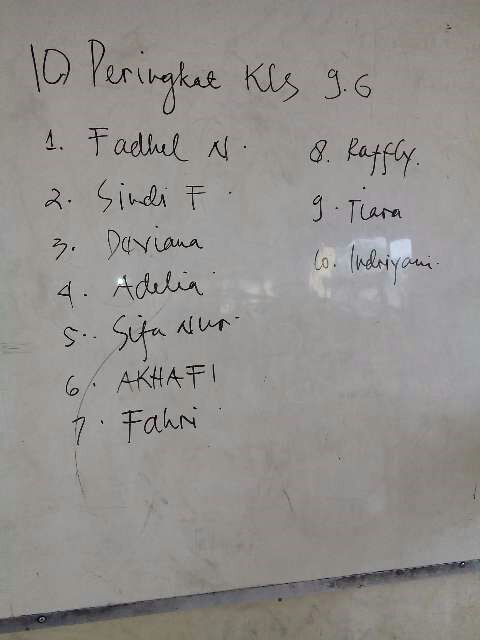 10 Peringkat Kls 9.6
1. Fadhel N.
2. Sindi F.
3. Daviana
4. Adelia
5. Sifa Nur.
6. AKHAFI
7. Fahri
8. Raffly.
9. Tiara
10. Indriyani.